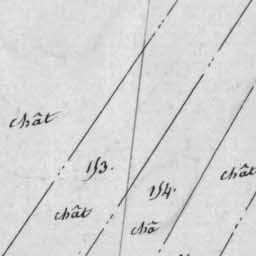 chât
153.
154.
chât
chât
châ